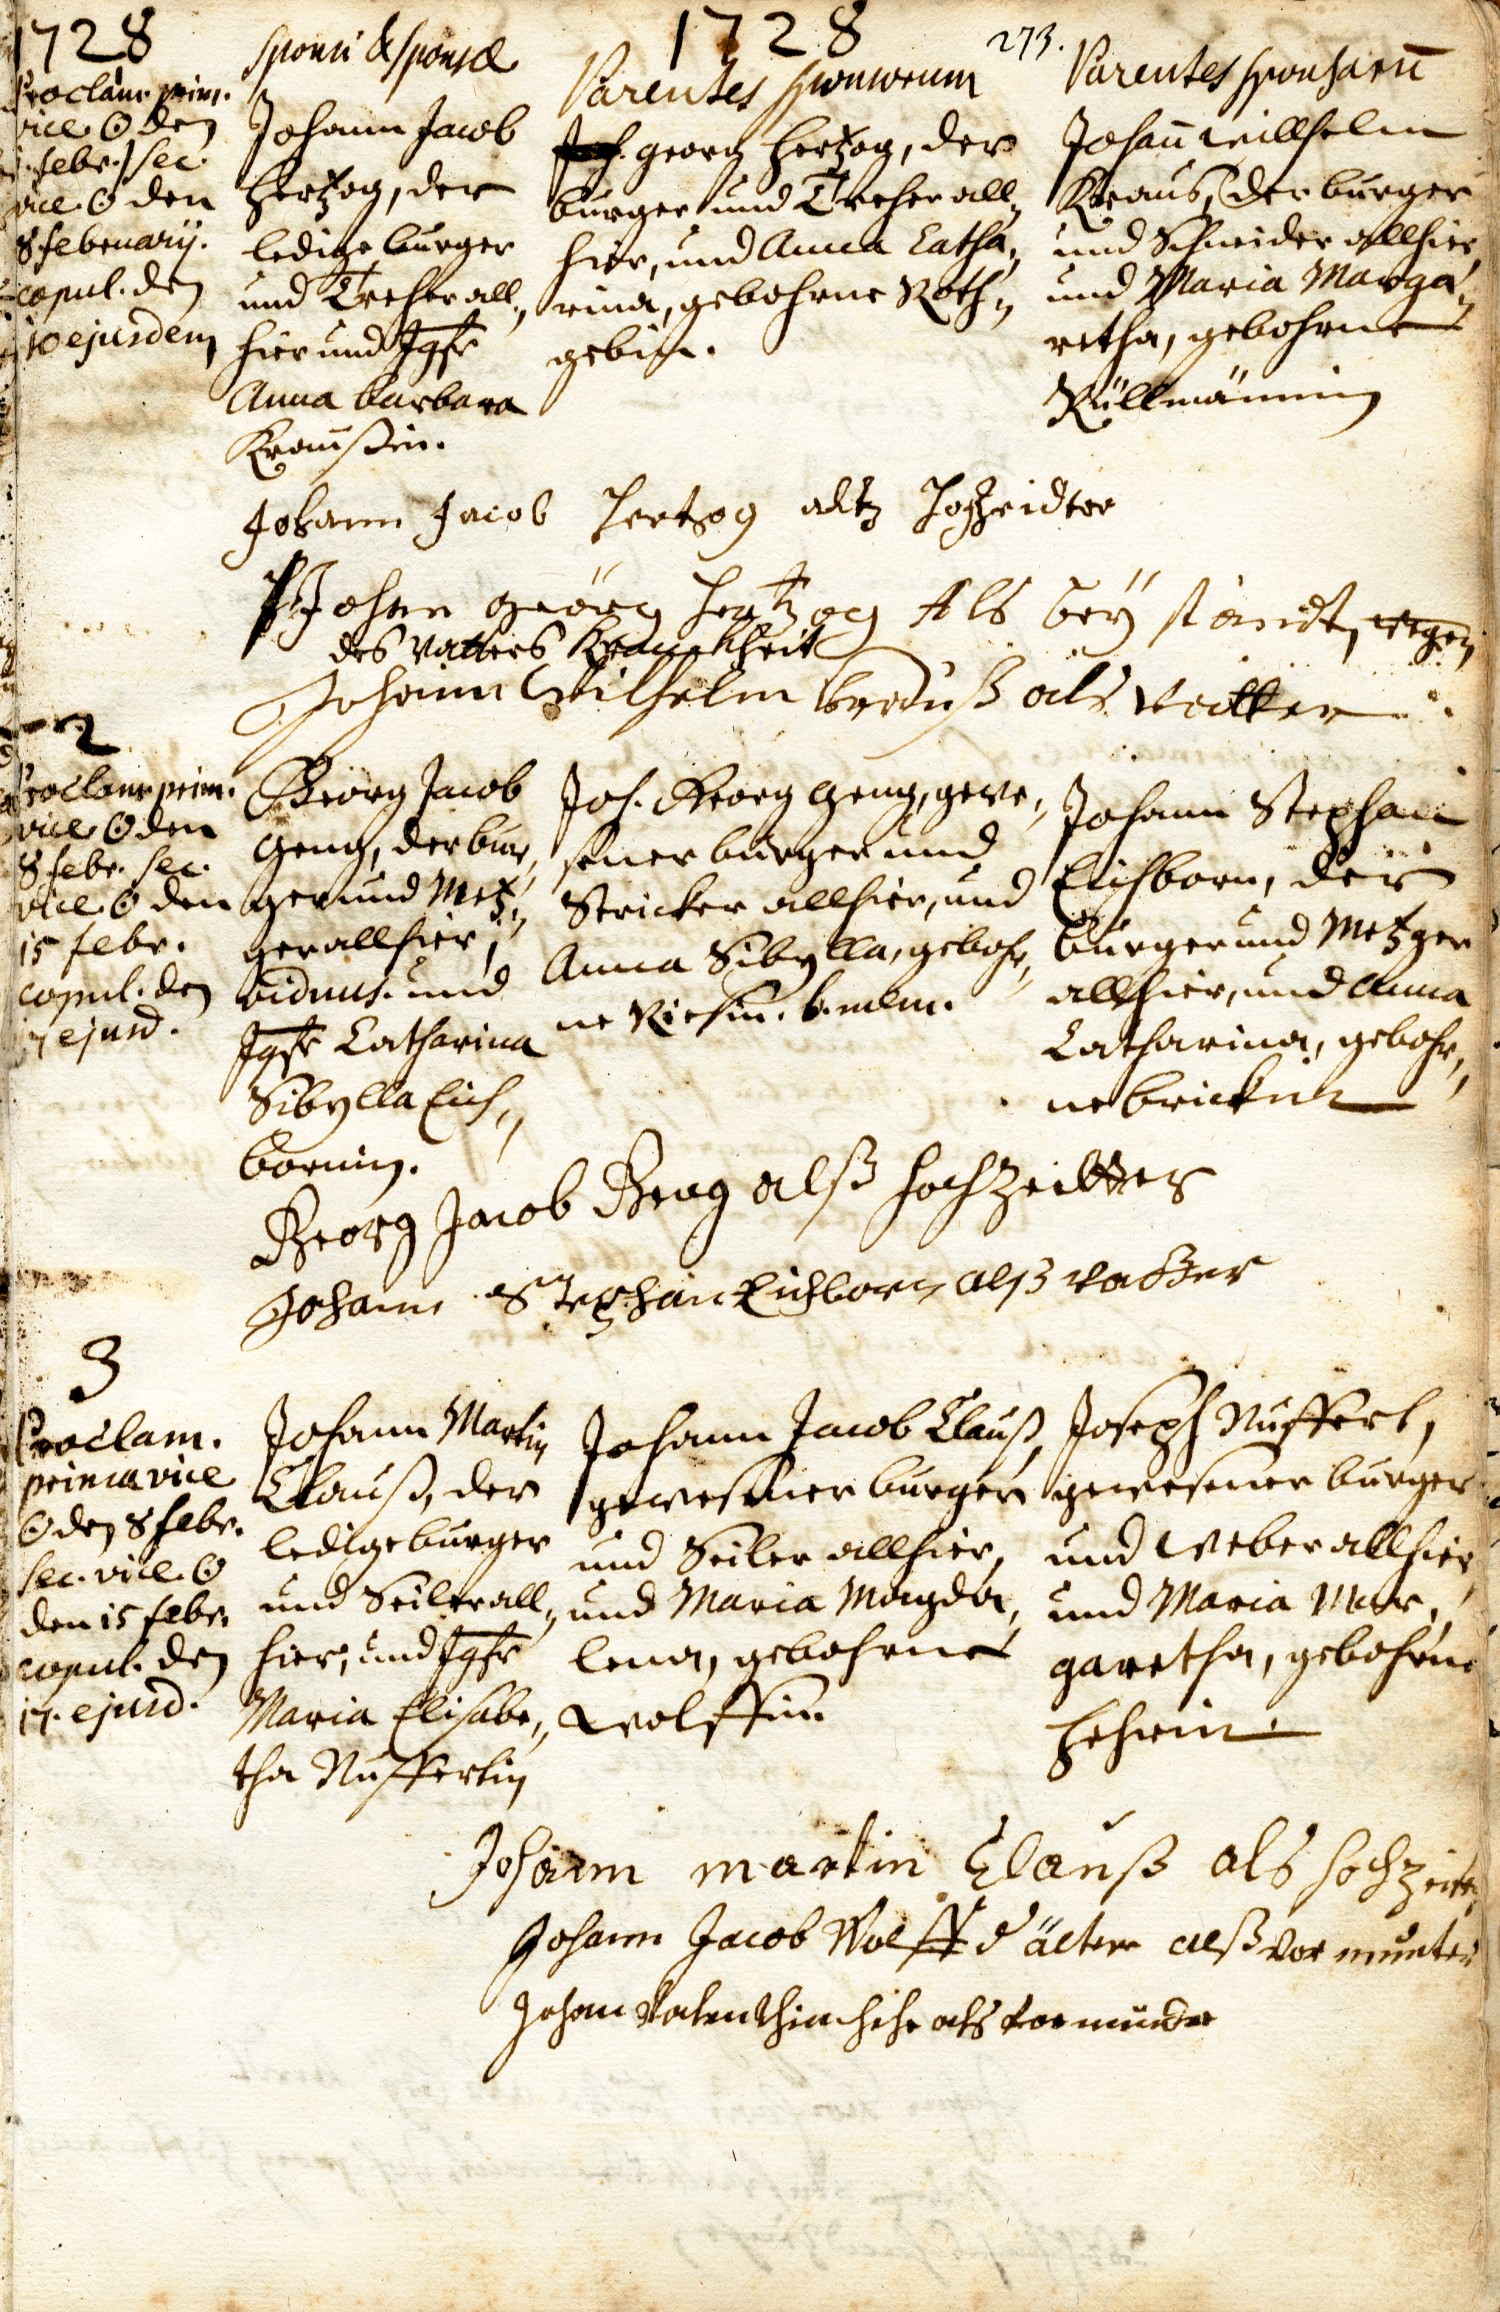 1728
1728
273.
Proclam. prim.
vice ☉ den
1. febr. sec.
vice ☉ den
8 february.
copul. den
10 ejusdem
Sponsi & Sponsæ
Johann Jacob
Hertzog, der
ledige burger
und Dreher all,,
hier und Jgfr
Anna Barbara
Kraußin.
Parentes Sponsorum
georg Hertzog, der
burger und Dreher all,,
hier, und Anna Catha,,
rina, gebohrne Roth,,
gebin.
Parentes Sponsarum̄
Johan̄ Willhelm
Kraus, der burger
und Schneider allhier,
und Maria Marga,,
retha, gebohrne
Rüllmännin
Johann Jacob Hertzog altz Hochzeidter
Johan geörg Hertzog Als bey standt, wegen
des Vatters Kranckheit
Johann Wilhelm Krauß als Vatter
2
Proclam prim.
vice ☉ den
8 febr. sec.
vice ☉ den
15 febr.
copul. den
17 ejusd.
Georg Jacob
Geng, der bur,,
ger und Metz,,
ger allhier,
viduus. und
Jgfr Catharina
Sibylla Eich,,
bornin.
Joh. Georg Geng, gewe,,
sener burger und
Stricker allhier, und
Anna Sibylla, gebohr,,
ne Riesin. b. mem.
Johann Stephan
Eichborn, der
burger und Metzger
allhier, und Anna
Catharina, gebohr,,
ne Brickin
Georg Jacob Geng alß hochzeitter
Johann Stephan Eichborn alß vatter
3
Proclam.
prima vice
☉ den 8 febr.
sec. vice ☉
den 15 febr.
copul. den
17. ejusd.
Johann Martin
Clauß, der
ledige burger
und Seiler all,,
hier, und Jgfr
Maria Elisabe,,
tha Nuffertin
Johann Jacob Clauß,
gewesener burger
und Seiler allhier,
und Maria Magda,,
lena, gebohrne
Wolffin.
Joseph Nuffert,
gewesener burger
und Weber allhier,
und Maria Mar,,
garetha, gebohrne
Hehrin.
Johann martin Clauß als hochzeiter
Johann Jacob Wolff d älter alß Vormunter
Johan Valenthin als Vormunder